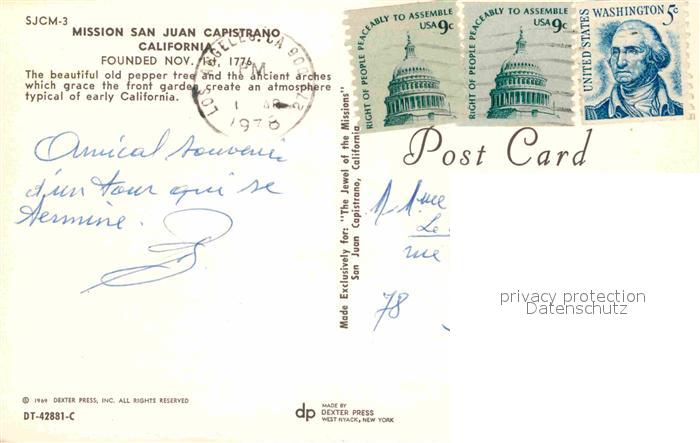 SJCM-3
MISSION SAN JUAN CAPISTRANO
CALIFORNIA
FOUNDED NOV. 1st, 1776
The beautiful old pepper tree and the ancient arches
which grace the front garden create an atmosphere
typical of early California.
LOS ANGELES, CA 90
PM
1978
RIGHT OF PEOPLE PEACEABLY TO ASSEMBLE
USA 9c
RIGHT OF PEOPLE PEACEABLY TO ASSEMBLE
USA 9c
UNITED STATES WASHINGTON 5c
Post Card
Amical souvenir
d'un tour qui se
termine.
Made Exclusively for: "The Jewel of the Missions"
San Juan Capistrano, California
Le
rue
78
privacy protection
Datenschutz
© 1969 DEXTER PRESS, INC. ALL RIGHTS RESERVED
DT-42881-C
dp MADE BY
DEXTER PRESS
WEST NYACK, NEW YORK